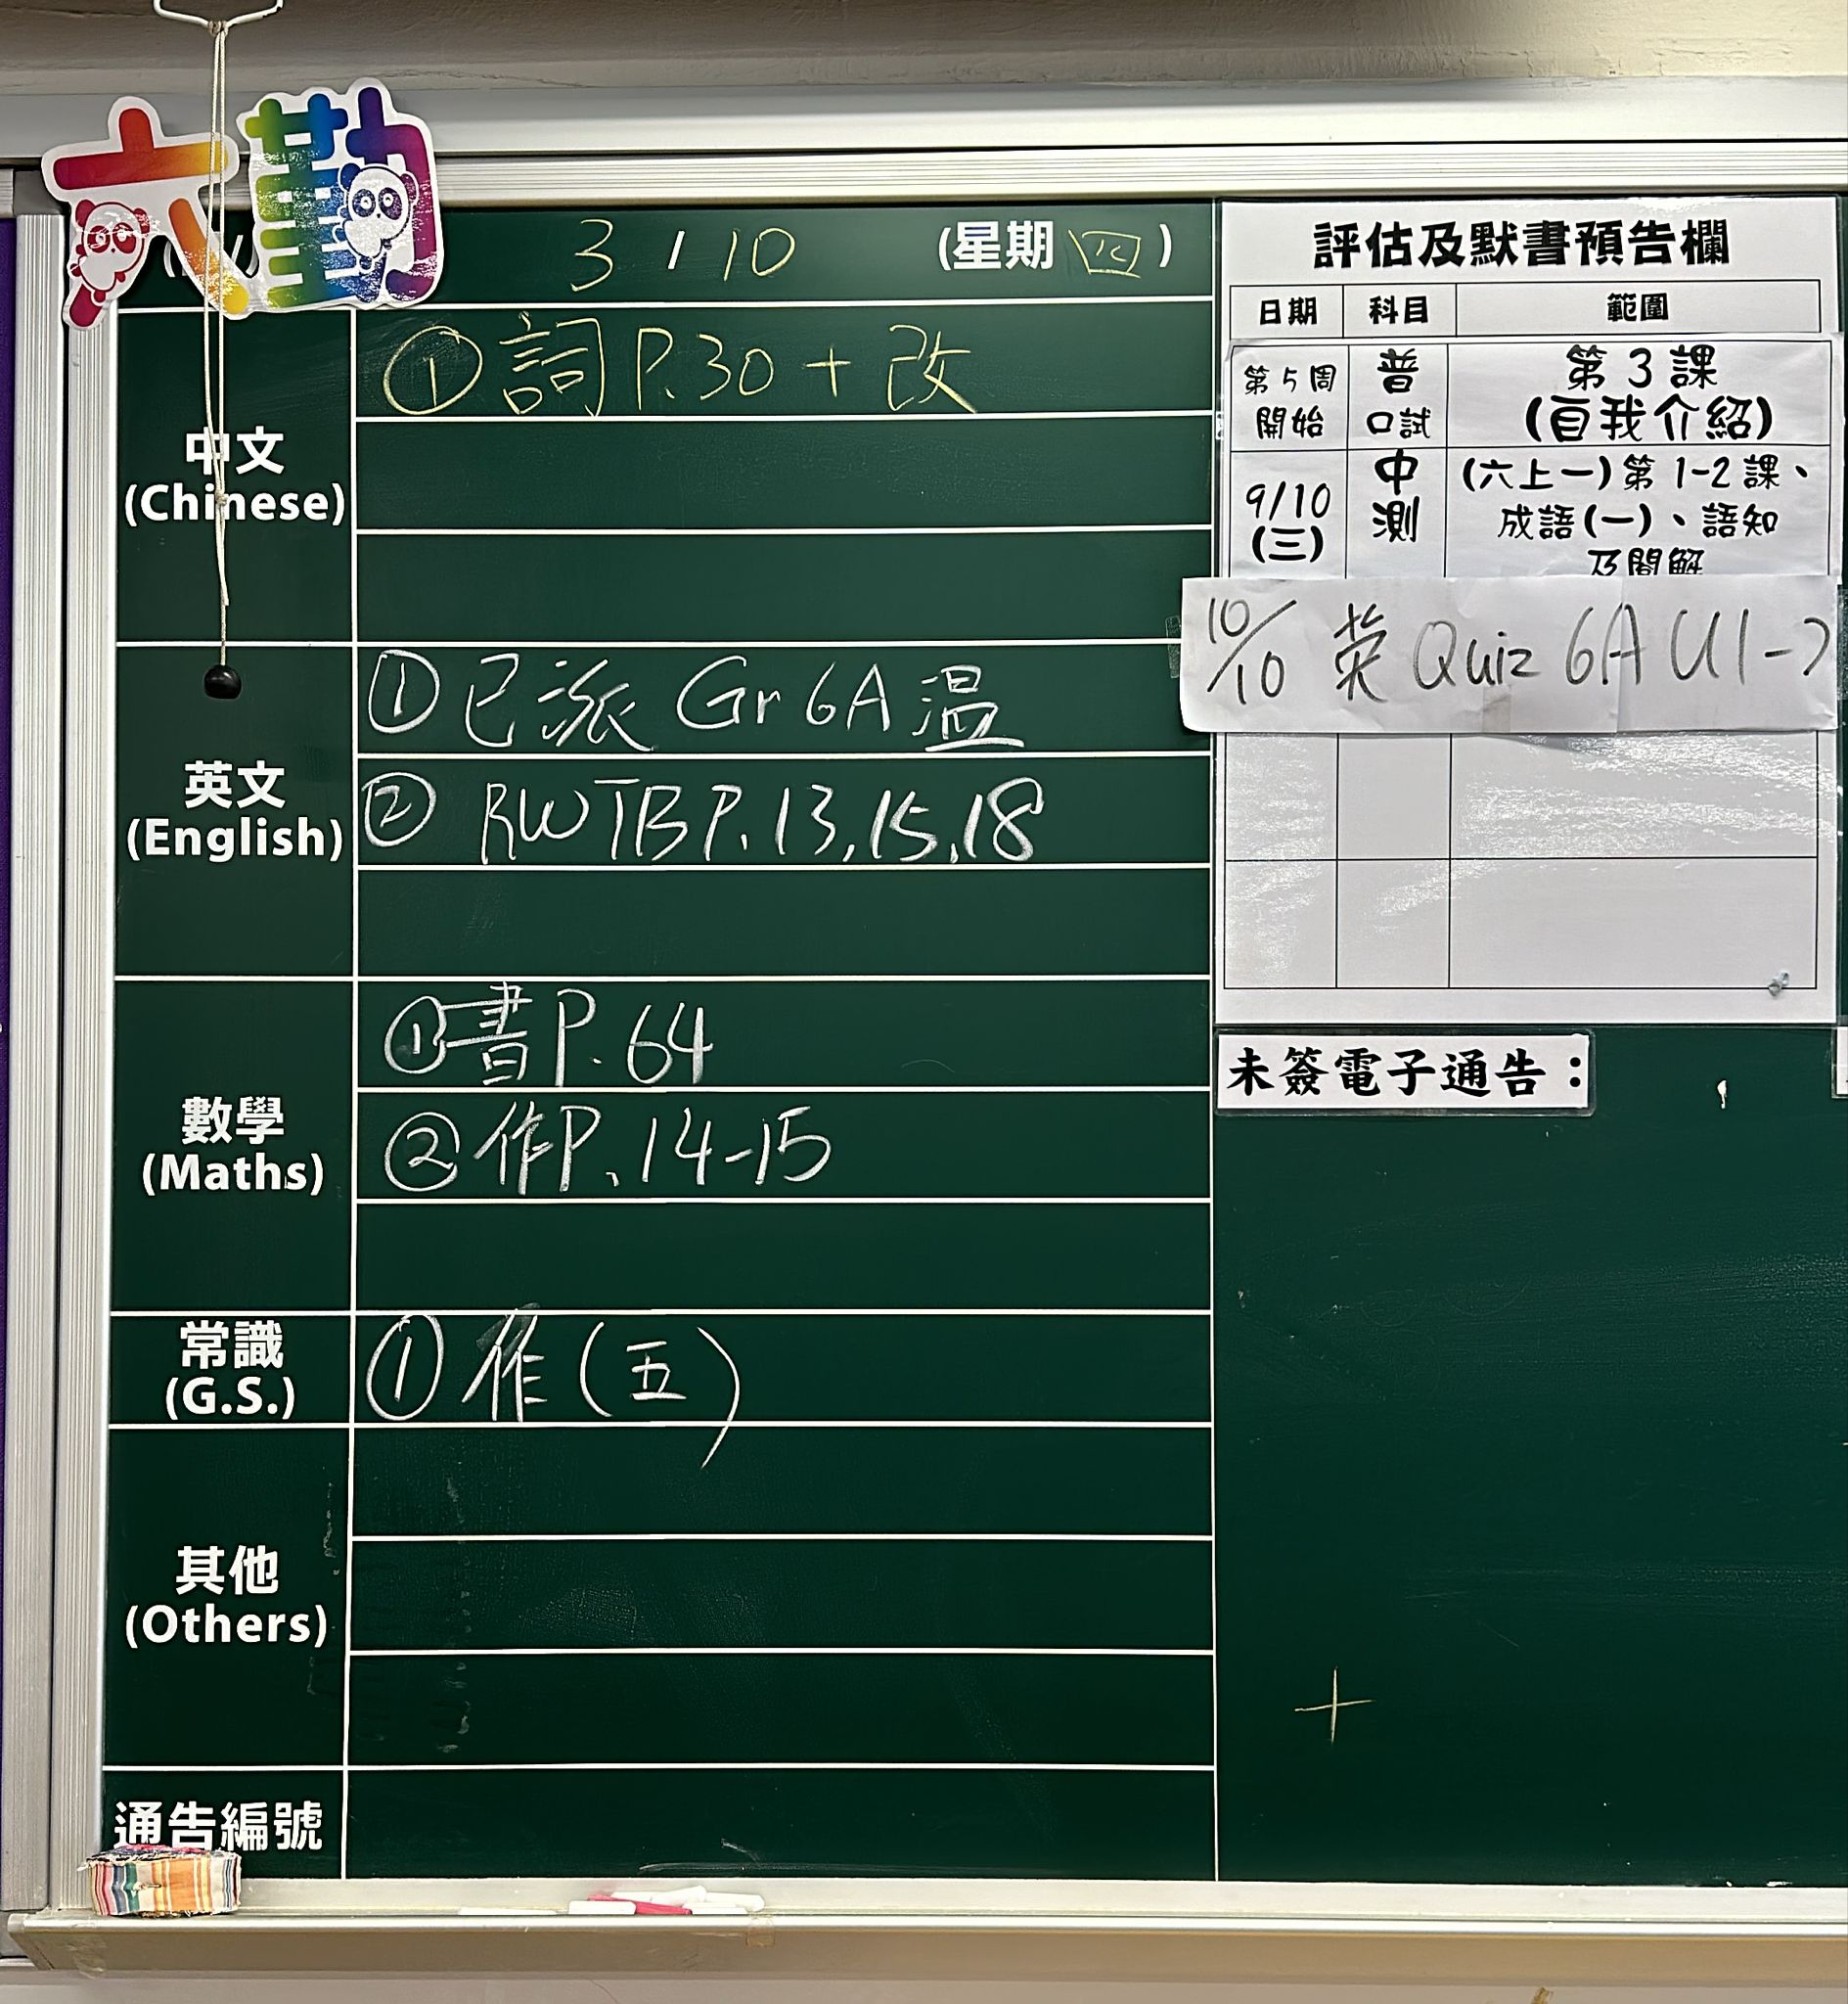 六勤
3 / 10 (星期四)
中文
(Chinese)
① 詞 P.30 + 改
英文
(English)
① 已派 Gr 6A 温
② RWTB P. 13, 15, 18
數學
(Maths)
① 書 P. 64
② 作 P. 14-15
常識
(G.S.)
① 作 (五)
其他
(Others)
通告編號
評估及默書預告欄
日期 科目 範圍
第5周開始 普口試 第3課(自我介紹)
9/10(三) 中測 (六上一)第1-2課、
成語(一)、語知
及閱解
10/10 英 Quiz 6A U1-2
未簽電子通告：
+